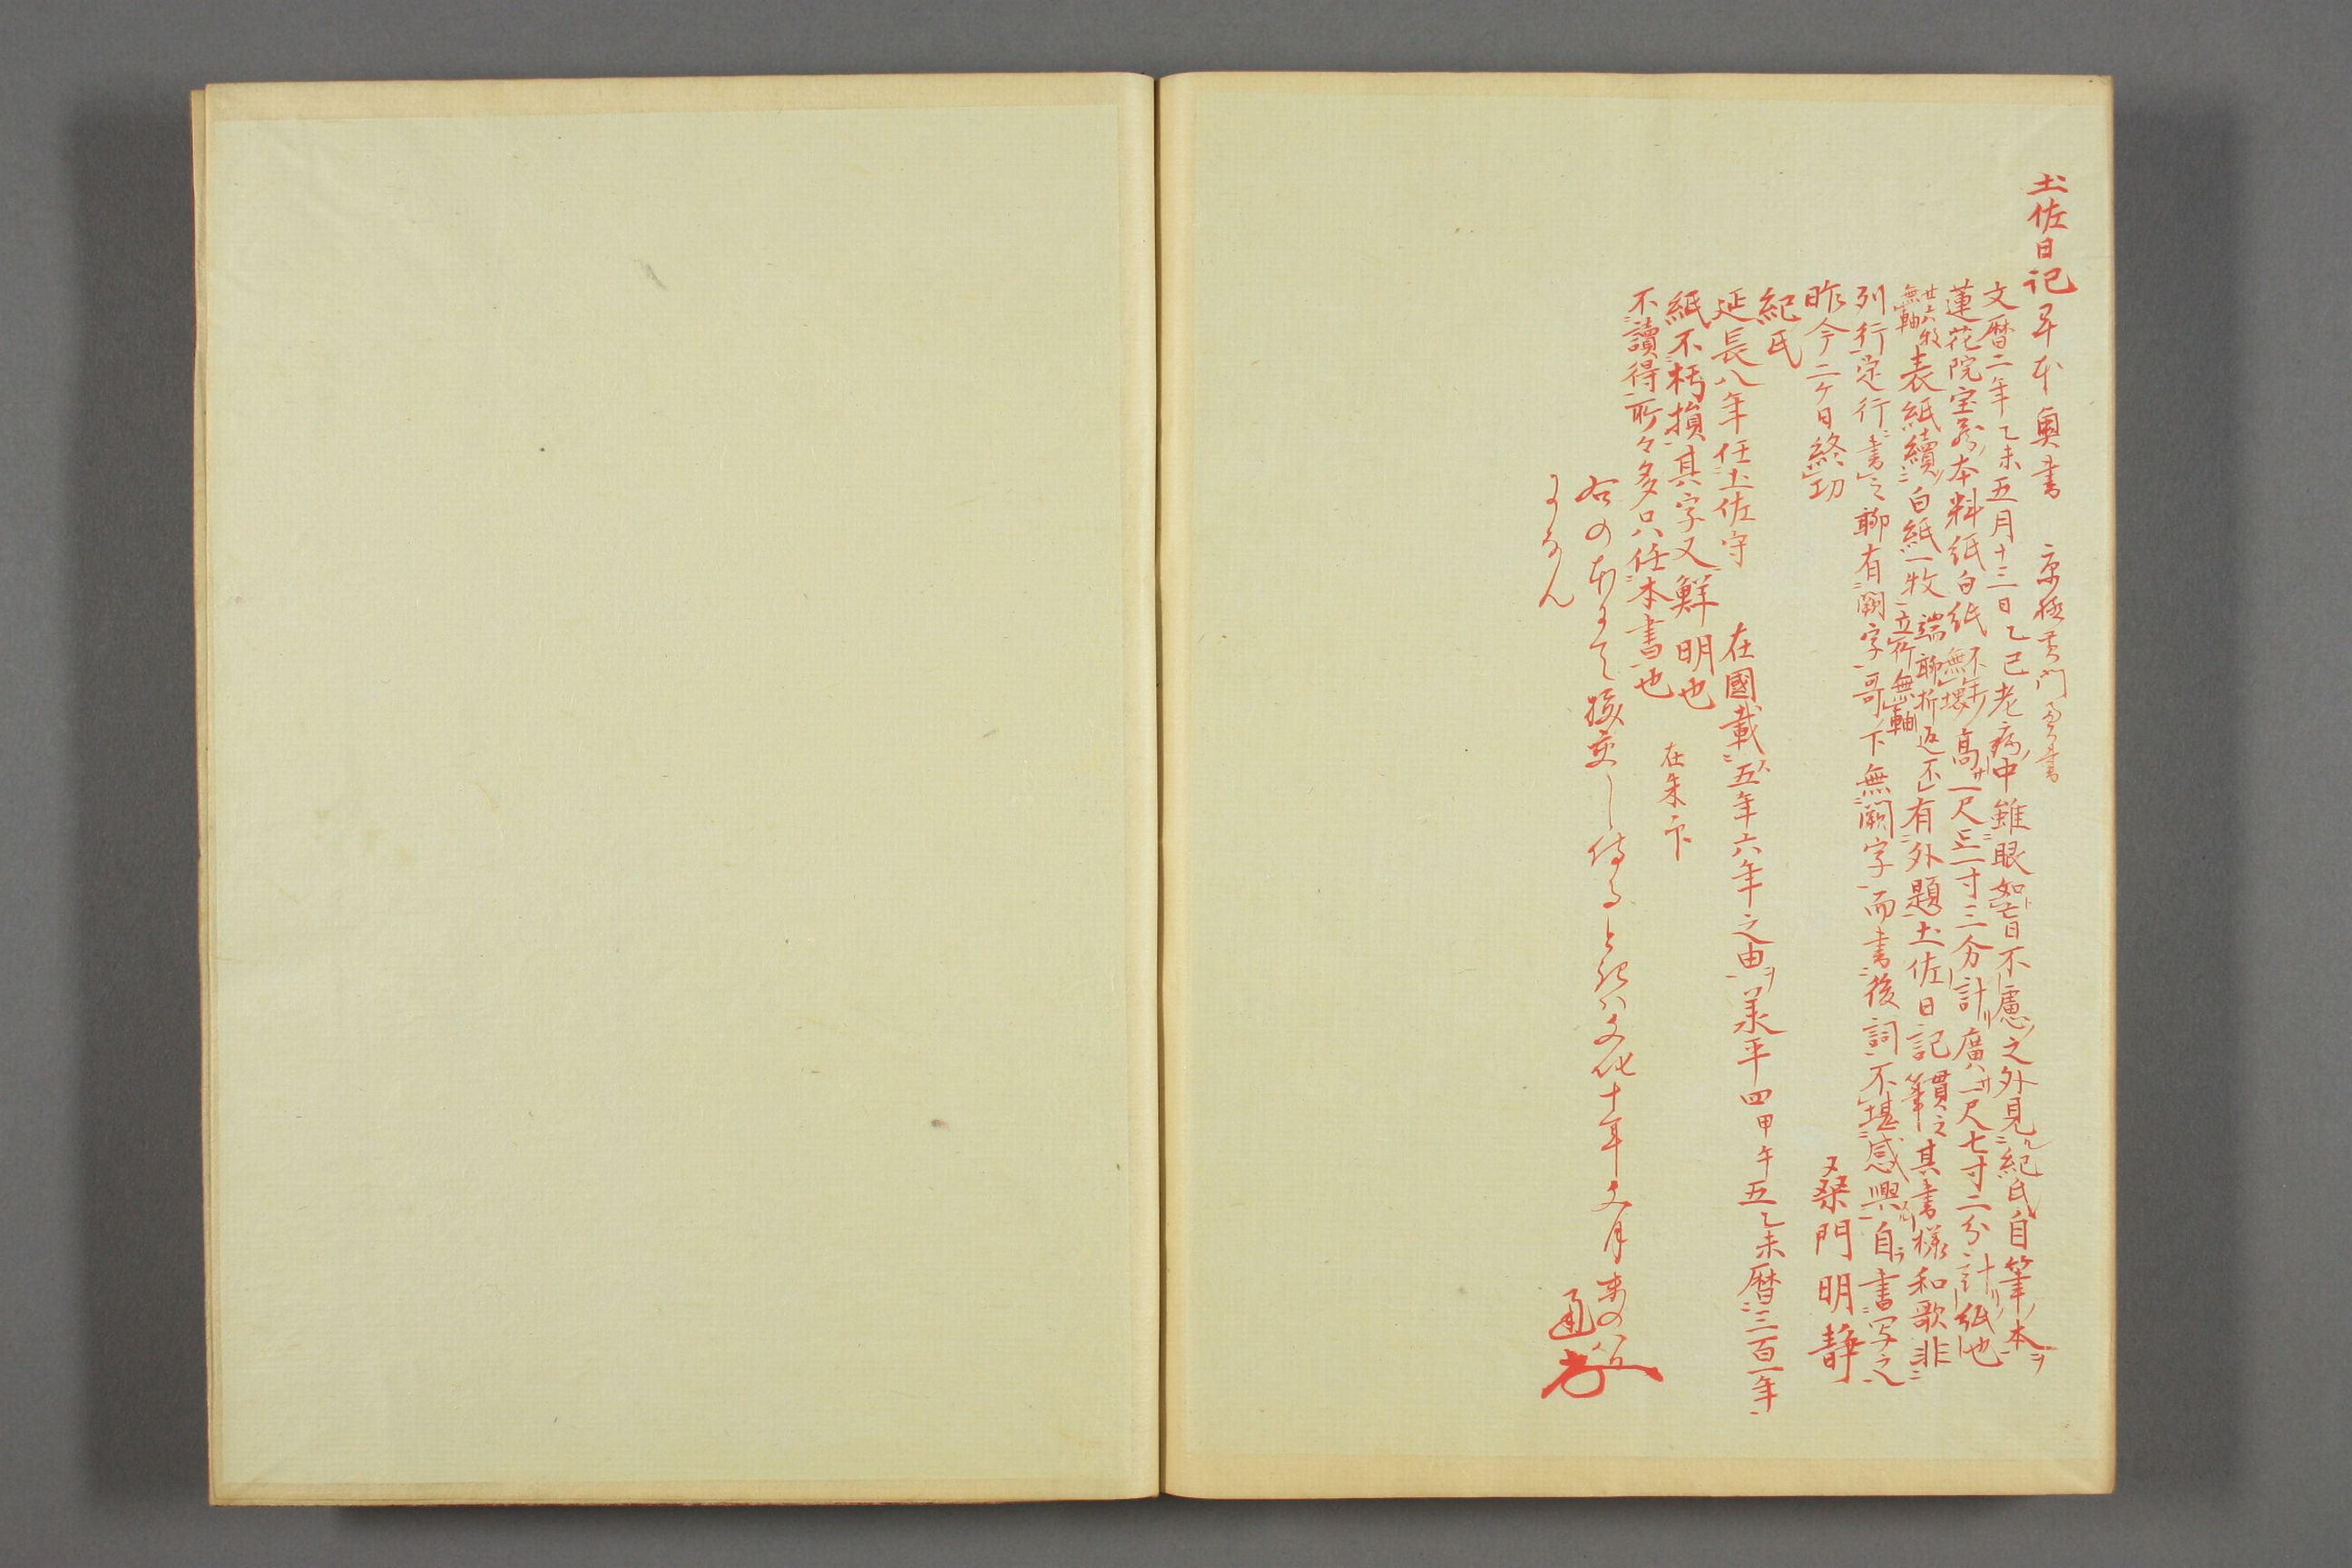 土佐日记 奥書 京極黄門
文暦二年乙未五月十三日乙巳老病中雖眼如盲不慮之外見紀氏自筆本ヲ
蓮花院宝蔵本料紙白紙不打無堺高サ一尺一寸三分計リ廣サハ一尺七寸二分計リ紙也
廿六枚無軸表紙續白紙一枚端聊折返不立竹無軸有外題土佐日記貫之筆其書様和歌非
列行定行書之聊有闕字哥下無闕字而書後詞不堪感興自書写之
昨今二ケ日終功
桑門明静
紀氏
延長八年任土佐守 在國載五年六年之由ヲ 承平四甲午五乙未暦三百一年
紙不朽損其字又鮮明也 在朱
不讀得所々多只任本書也
右の本にて挍し侍るときハ文化十年文月
になん